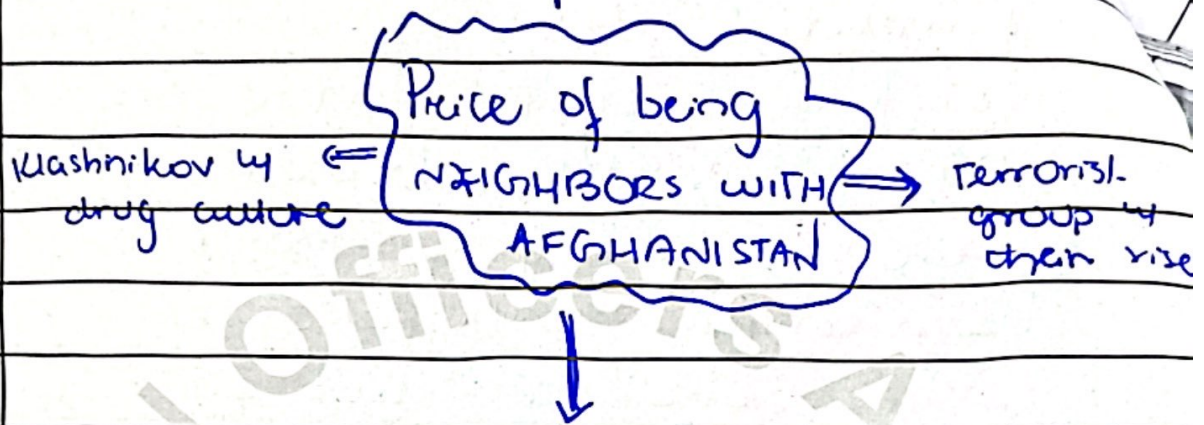 Price of being
NEIGHBORS WITH
AFGHANISTAN
Klashnikov &
drug culture
Terrorist
group &
their rise
Officers A